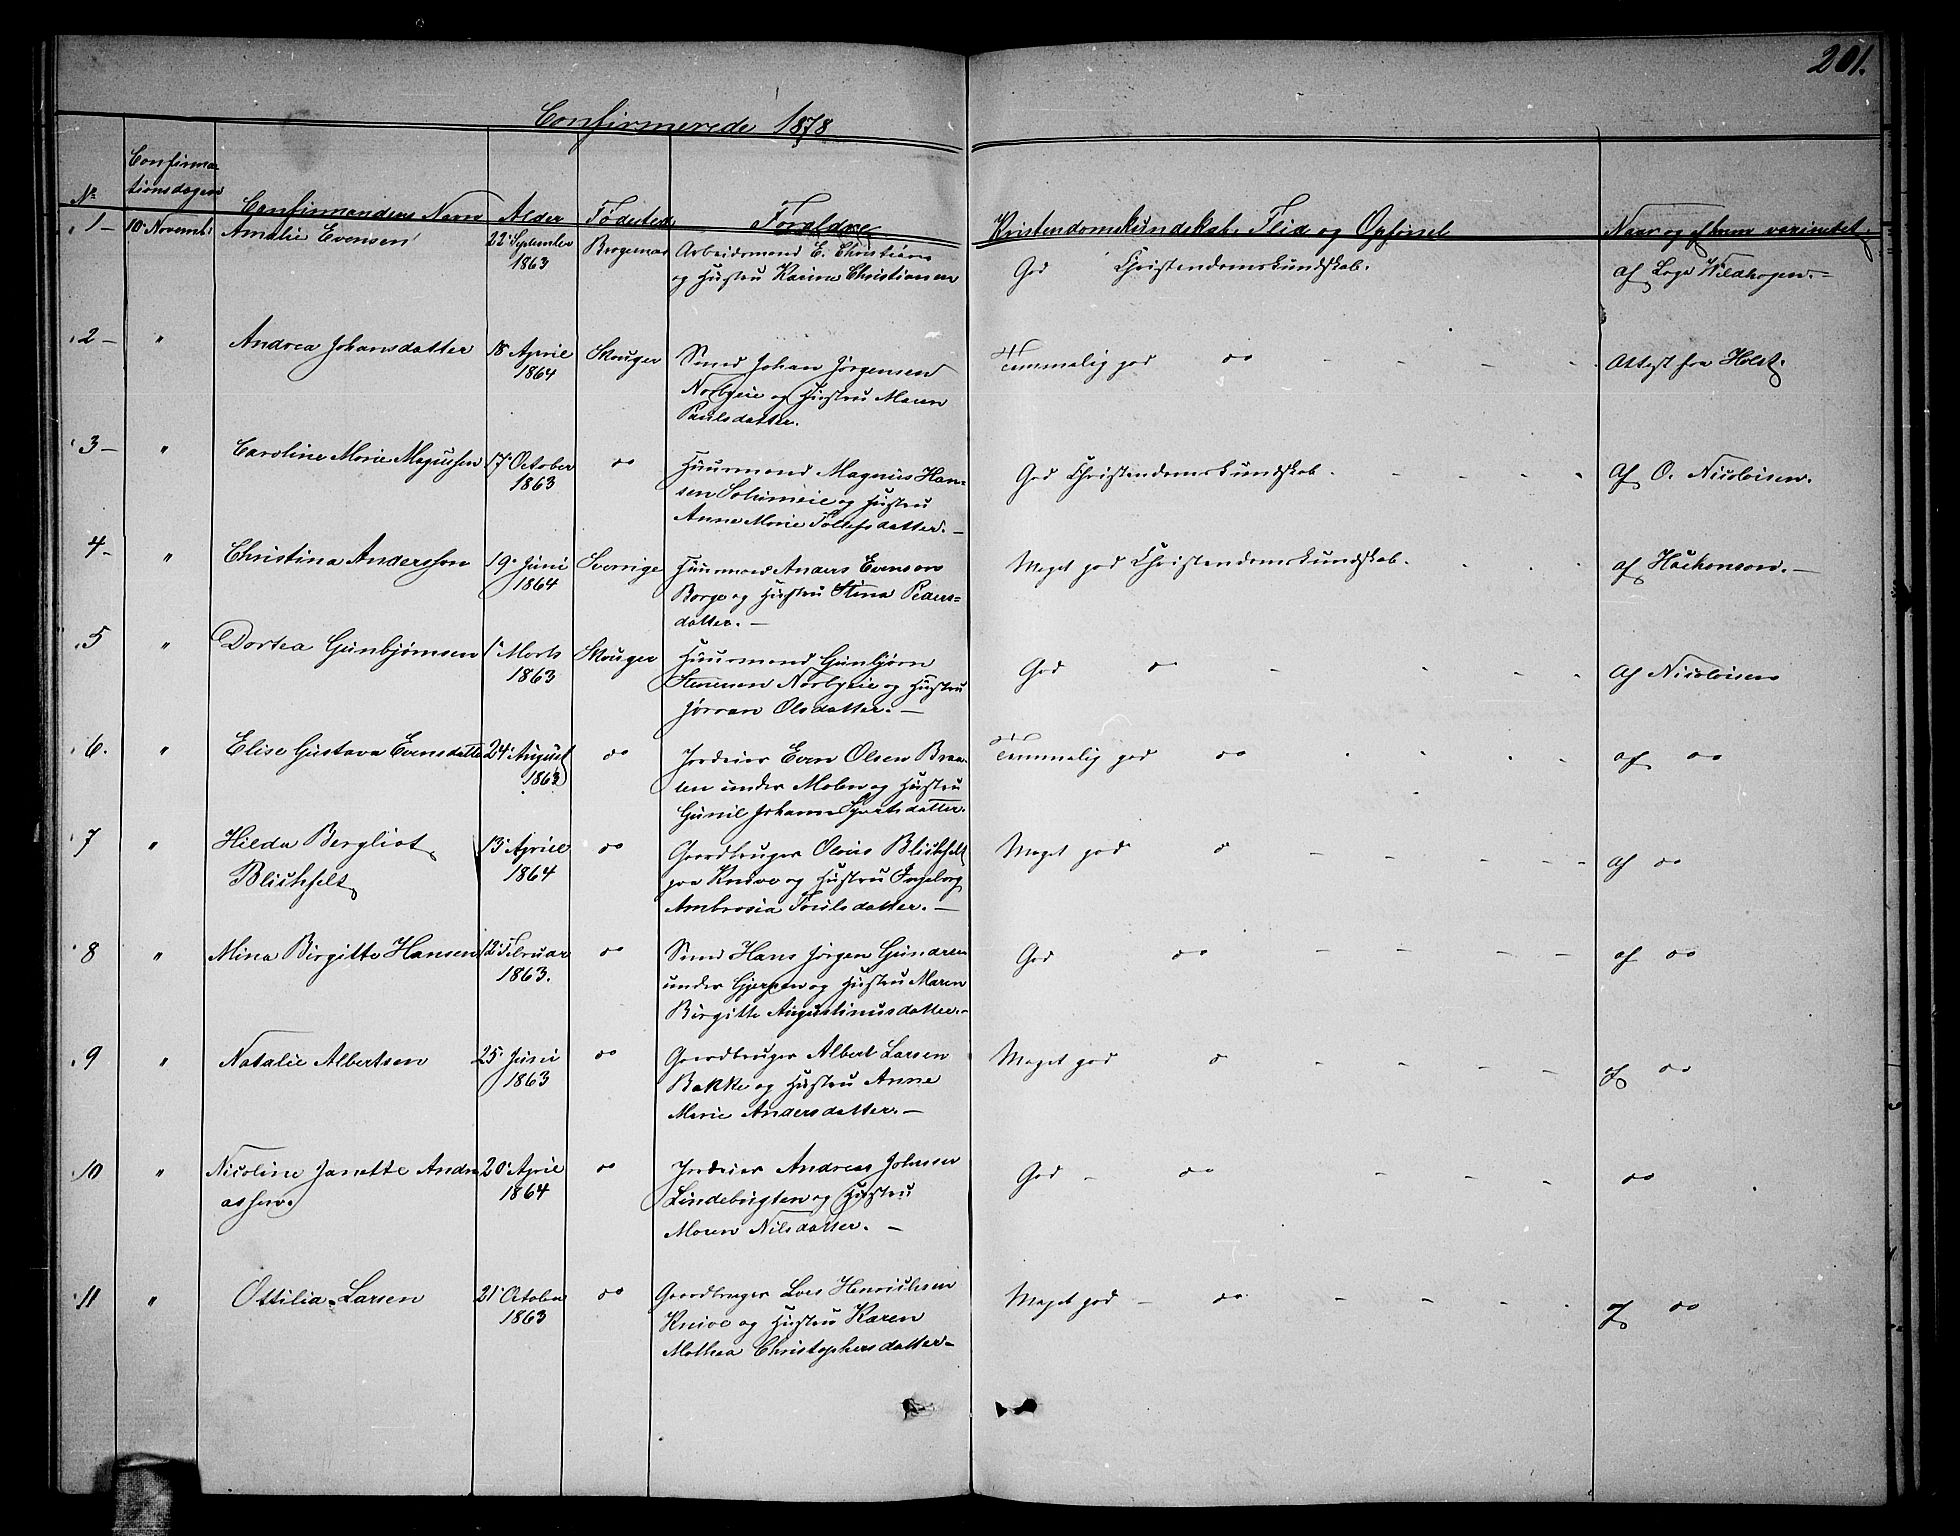 201.
Confirmerede 1878
No
Confirmationsdagen
Confirmandens Navn Alder Fødested Foræld­re
Kristendomskundskab, Flid og Opførsel
Naar og af hvem vaccineret
1 — 10 Novembr Amalie Evensen 22 September 1863
Arbeidsmand E. Christians
og Hustru Karine Christiansen
God Christendomskundskab.
af Loge Wildhagen. —
2 — " Andrea Johansdatter 18 April 1864 Skouger
Smed Johan Jørgensen
Norbyeie og Hustru Maren
Paulsdatter.
Temmelig god do - - - -
Attest fra Holst.
3 — " Caroline Marie Magnussen 17 October 1863 do
Huusmand Magnus Han-
sen Solumeie og Hustru
Anne Marie Tollefsdatter. —
God Christendomskundskab. - - -
Af O. Nicolaisen.
4 - " Christina Andersson 19 Juni 1864 Sverige
Huusmand Anders Evensen
Borge og Hustru Stina Peders=
datter. —
Meget god Christendomskundskab. - - -
af Haakenson. —
5 " Dortea Gunbjørnsen 1 Marts 1863 Skouger
Huusmand Gunbjørn
Stenersen Norbyeie og Hustru
Jørran Olsdatter. —
God do - - - -
Af Nicolaisen
6. " Elise Gustava Evensdatte 24 August 1863 do
Jordeier Even Olsen Braa-
ten under og Hustru
Gunil Johanne Syvertsdatter.
Temmelig god do - - -
af do
7 " Hilda Bergliot
Blichfelt
13 April 1864 do
Gaardbruger Olaus Blichfelt
paa Knive og Hustru Ingeborg
Ambrosia Poulsdatter. —
Meget god do - - - -
af do
8 " Mina Birgitte Hansen 12 Februar 1863. do
Smed Hans Jørgen Gundersen
under Gjerpen og Hustru Maren
Birgitte Augustinusdatter. -
God do - - - -
af do
9 " Natalie Albertsen 25 Juni 1863 do
Gaardbruger Albert Larsen
Bakke og Hustru Anne
Marie Andersdatter. —
Meget god do - - - -
af do
10 " Nicoline Janette Andre
assen.
20 April 1864 do
Jordeier Andreas Johnsen
Lindebugten og Hustru
Maren Nilsdatter. —
God - do - - -
do
11 " Ottilia Larsen 21 October 1863 do
Gaardbruger Lars Henrichsen
Knive og Hustru Karen
Mathea Christophersdatter -
Meget god - do - - - -
af do